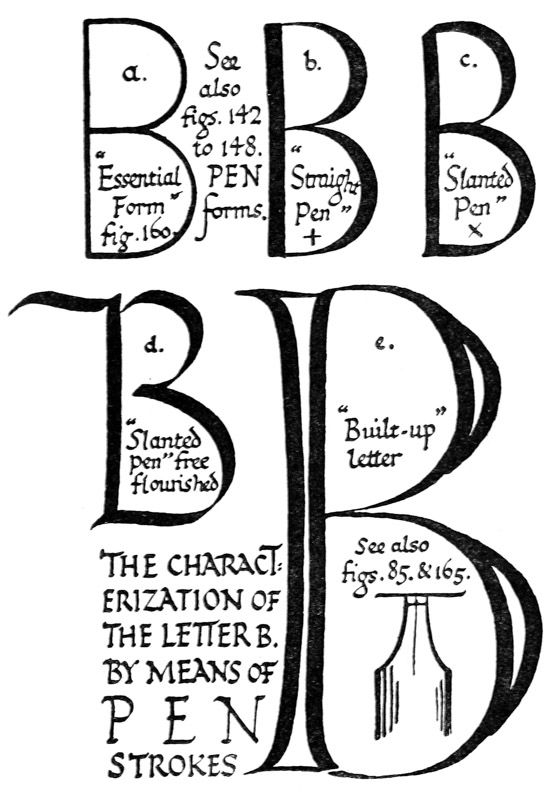 a.
"Essential
Form"
fig. 160.
See
also
figs. 142
to 148.
PEN
forms.
b.
"Straight
Pen"
+
c.
"Slanted
Pen"
×
d.
"Slanted
pen" free
flourished
e.
"Built-up"
letter
See also
figs. 85. & 165.
THE CHARACT-
ERIZATION OF
THE LETTER B.
BY MEANS OF
PEN
STROKES